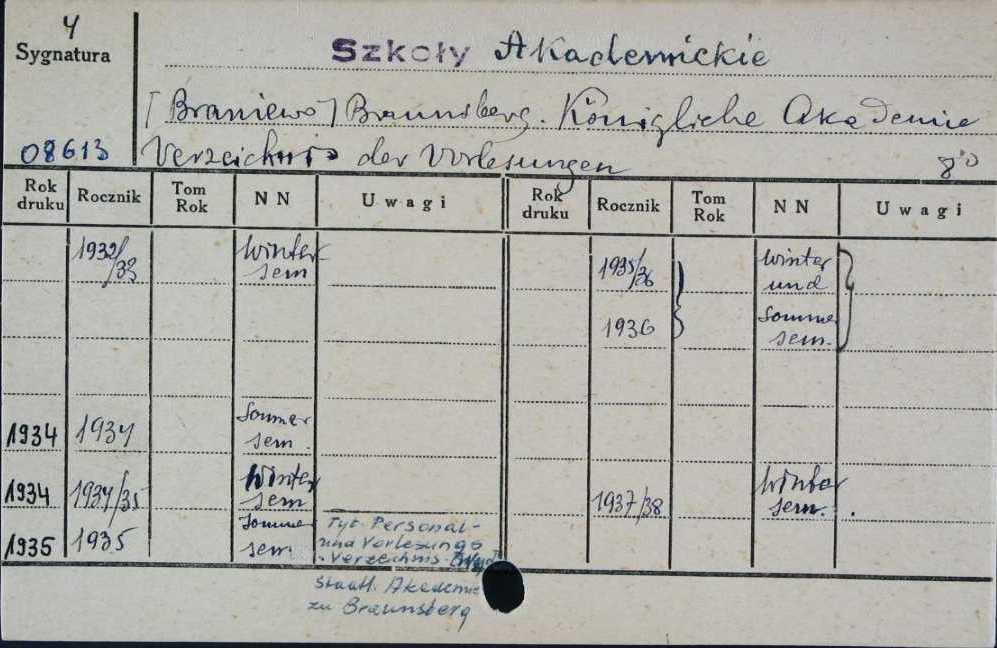 4
Sygnatura
08613
Szkoły Akademickie
[Braniewo] Braunsberg. Königliche Akademie
Verzeichnis der Vorlesungen 8°
Rok druku Rocznik Tom Rok NN Uwagi Rok druku Rocznik Tom Rok NN Uwagi
1932/33 Winter-
sem
1935/36 Winter
und
1936 Sommer
sem.
1934 1934 Sommer
sem.
1934 1934/35 Winter
sem
1937/38 Winter
sem.
1935 1935 Sommer
sem.
Tyt. Personal-
und Vorlesungs
Verzeichnis
Staatl. Akademie
zu Braunsberg